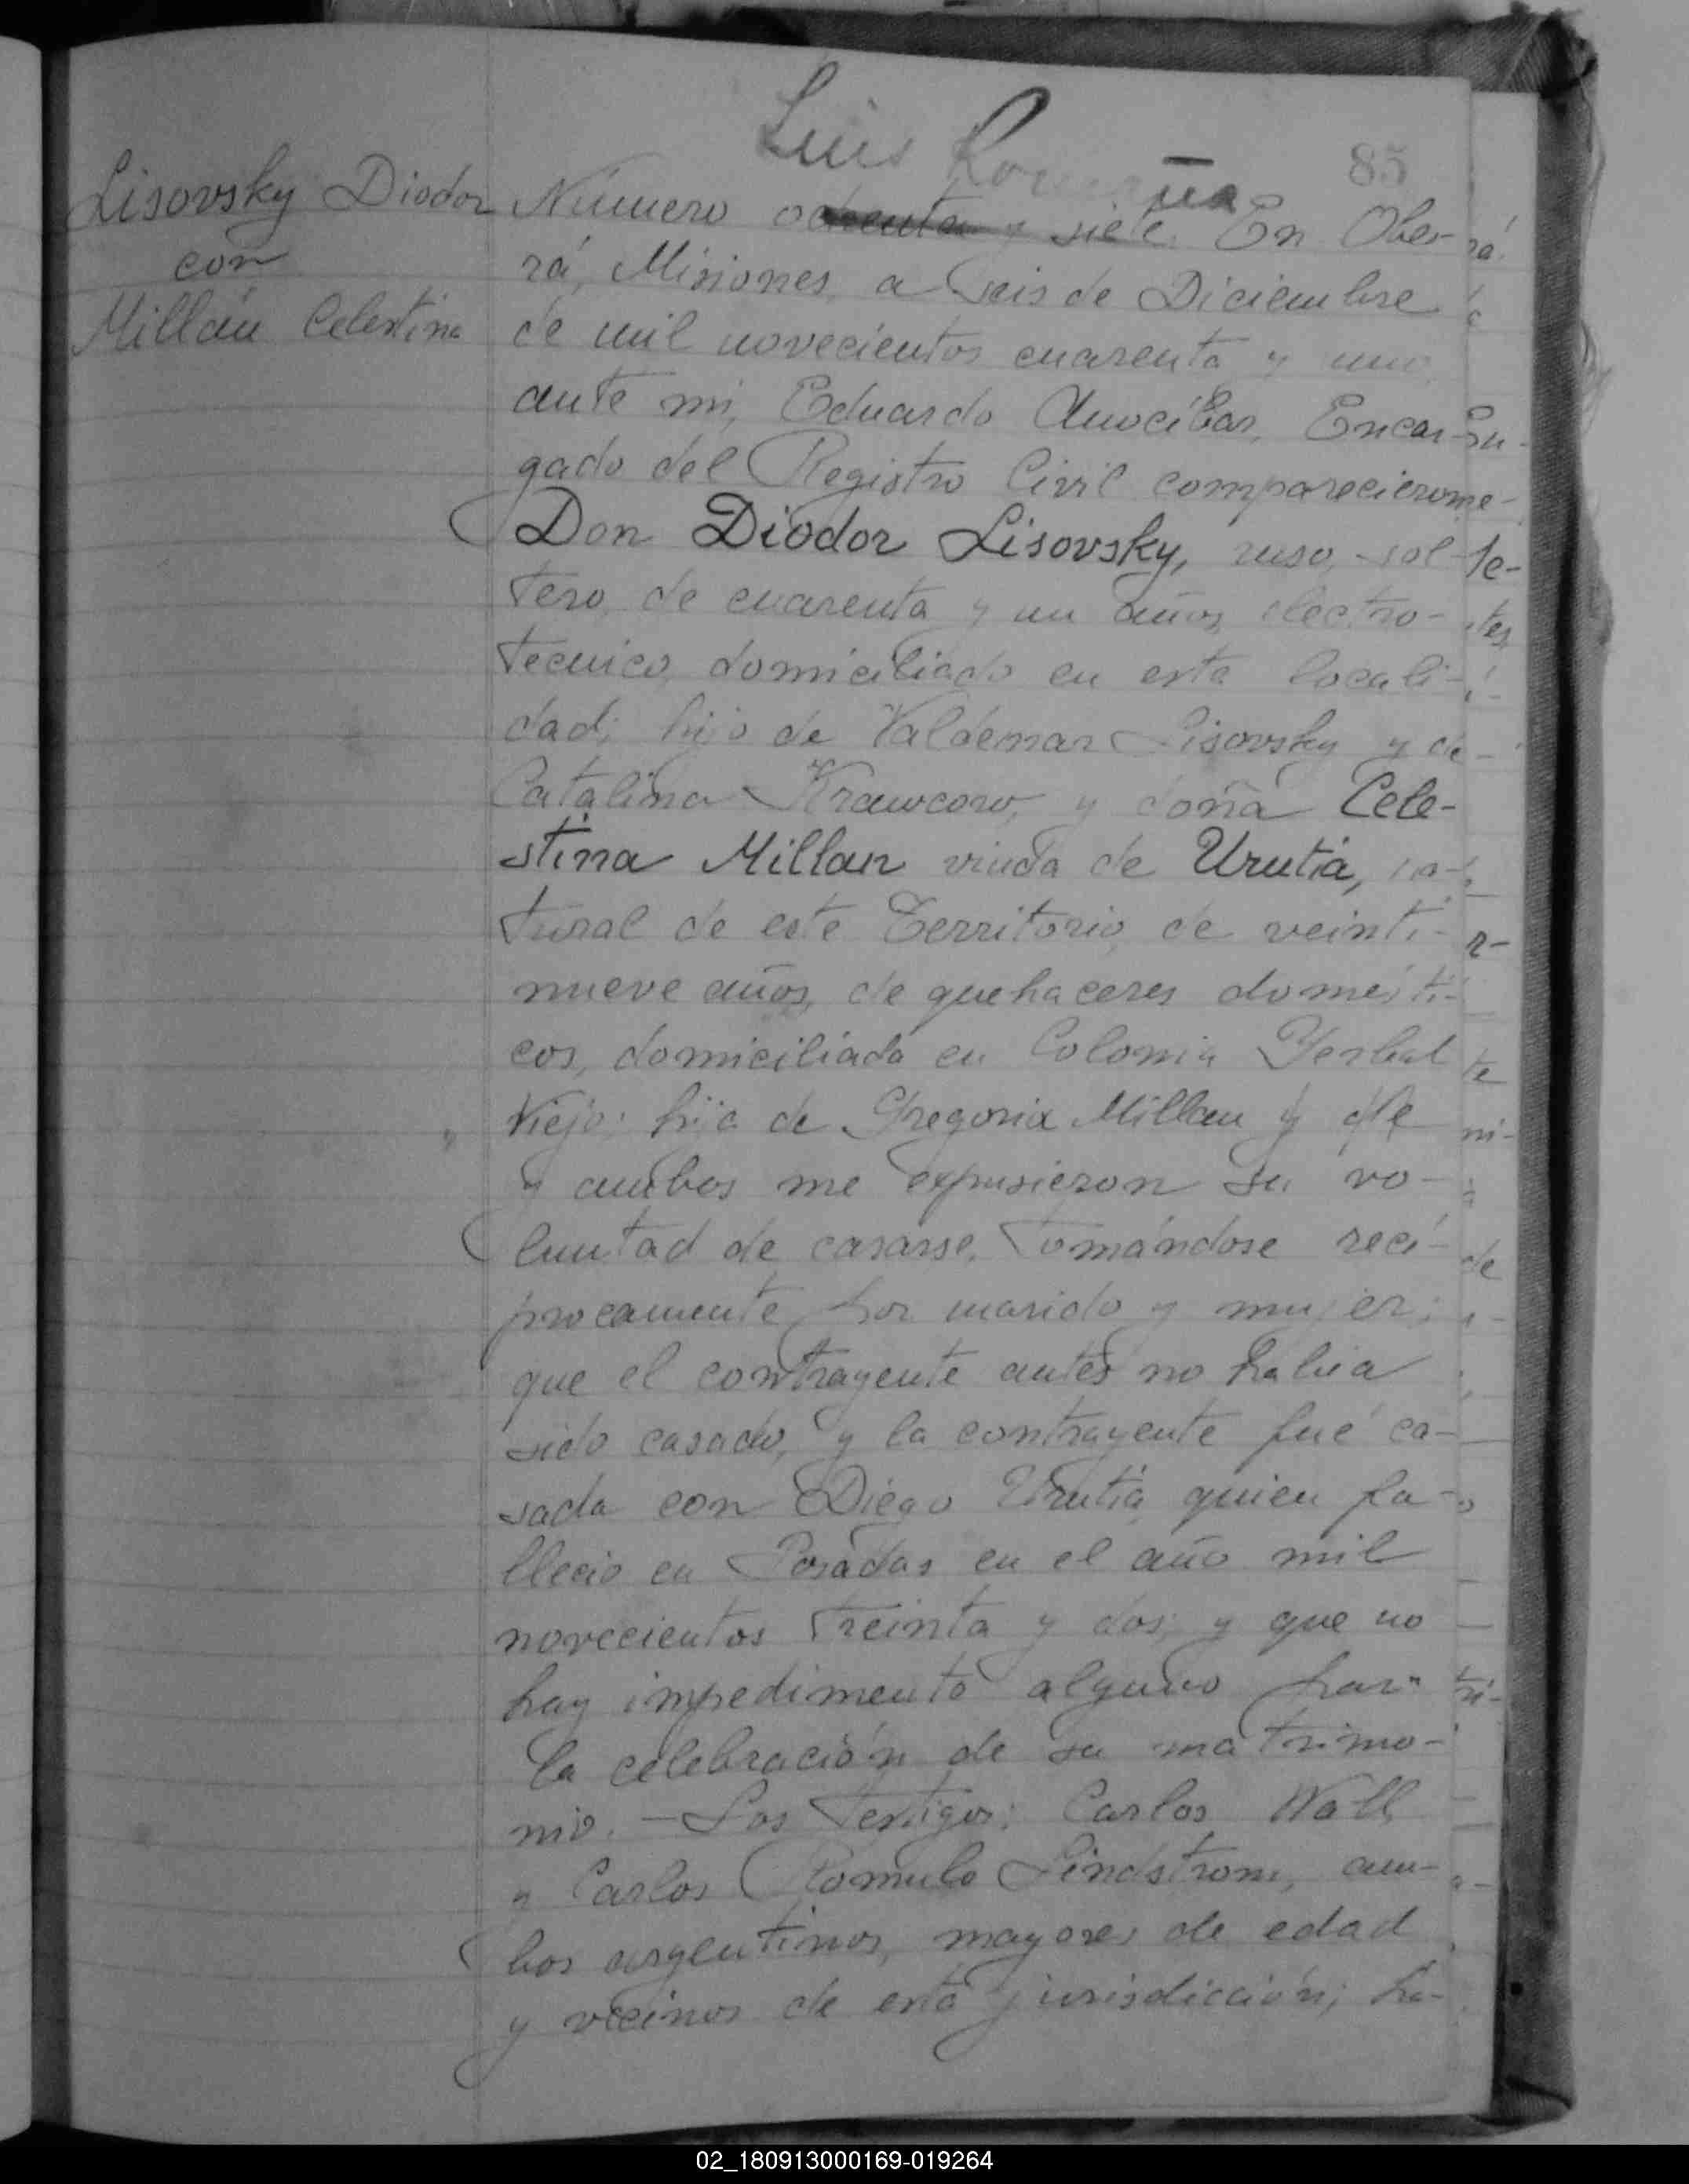 Luis
85
Lisovsky Diodor
con
Millán Celestina
Número ochenta y siete. En Obe-
rá, Misiones, a seis de Diciembre
de mil novecientos cuarenta y uno
ante mi, Eduardo Amocíbar, Encar-
gado del Registro Civil comparecieron
Don Diodor Lisovsky, ruso, sol-
tero, de cuarenta y un años, electro-
tecnico, domiciliado en esta locali-
dad; hijo de Valdemar Lisovsky y de
Catalina Krawcow, y doña Cele-
stina Millan viuda de Urutia, na-
tural de este Territorio, de veinti-
nueve años, de quehaceres domésti-
cos, domiciliada en Colonia Yerbal
Viejo; hija de Gregoria Millan y de
y ambos me expusieron su vo-
luntad de casarse, tomándose recí-
procamente por marido y mujer;
que el contrayente antes no habia
sido casado, y la contrayente fué ca-
sada con Diego Urutia, quien fa-
llecio en Posadas en el año mil
novecientos treinta y dos, y que no
hay impedimento alguno para
la celebración de su matrimo-
nio. - Los testigos; Carlos Wall
y Carlos Romulo Lindstrom, am-
bos argentinos, mayores de edad
y vecinos de esta jurisdicción; ha-
02_180913000169-019264